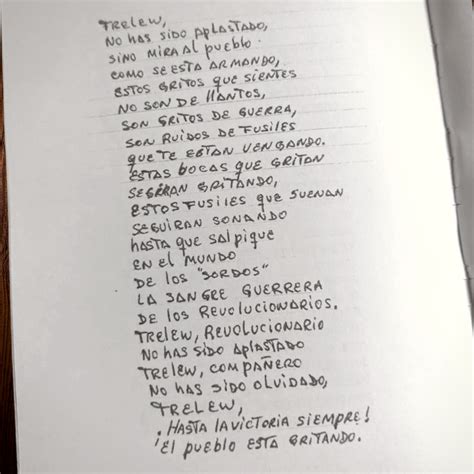 TRELEW,
NO HAS SIDO APLASTADO,
SINO MIRA AL PUEBLO.
COMO SE ESTA ARMANDO,
ESTOS GRITOS QUE SIENTES
NO SON DE LLANTOS,
SON GRITOS DE GUERRA,
SON RUIDOS DE FUSILES
QUE TE ESTAN VENGANDO.
ESTAS BOCAS QUE GRITAN
SEGIRAN GRITANDO,
ESTOS FUSILES QUE SUENAN
SEGUIRAN SONANDO
HASTA QUE SALPIQUE
EN EL MUNDO
DE LOS "SORDOS"
LA SANGRE GUERRERA
DE LOS REVOLUCIONARIOS.
TRELEW, REVOLUCIONARIO
NO HAS SIDO APLASTADO
TRELEW, COMPAÑERO
NO HAS SIDO OLVIDADO,
TRELEW,
¡HASTA LA VICTORIA SIEMPRE!
EL PUEBLO ESTA GRITANDO.